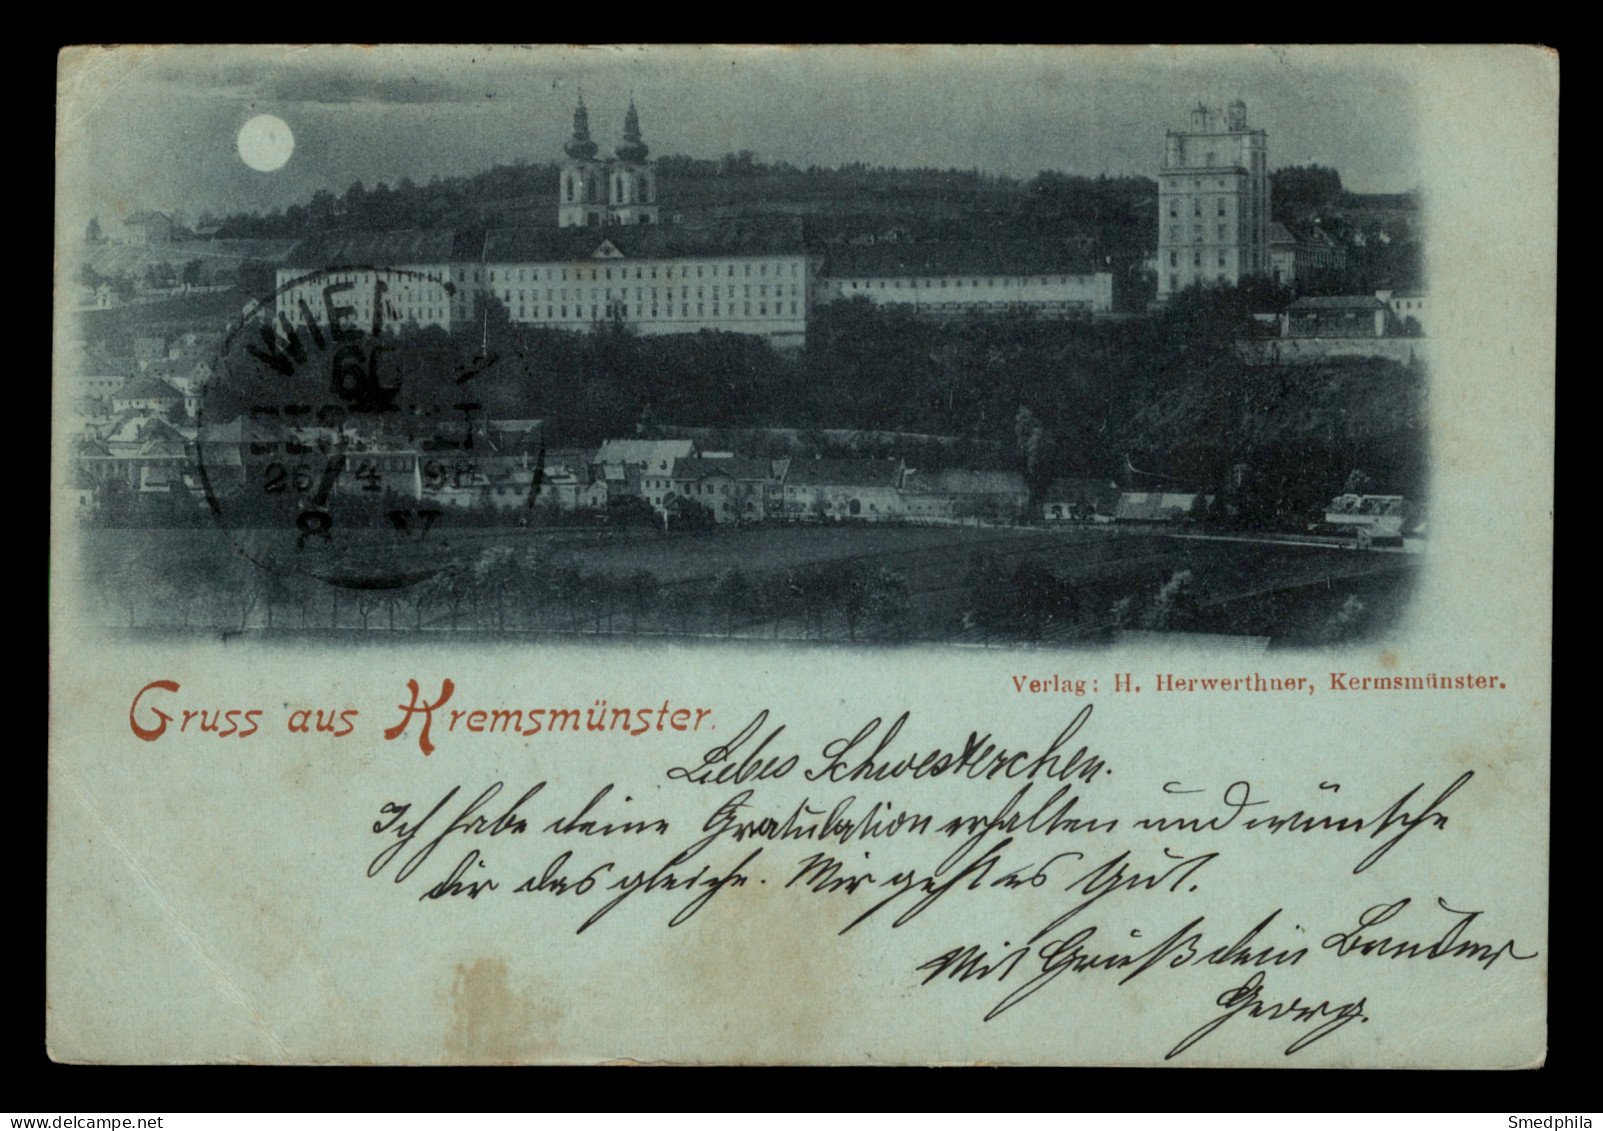 WIEN
60
BESTELLT
26 4 98
8
Gruss aus Kremsmünster.
Verlag: H. Herwerthner, Kermsmünster.
Liebes Schwesterchen.
Ich habe deine Gratulation erhalten und wünsche
dir das gleiche. Mir geht es gut.
Mit Gruß dein Bruder
Georg.
www.delcampe.net
Smedphila